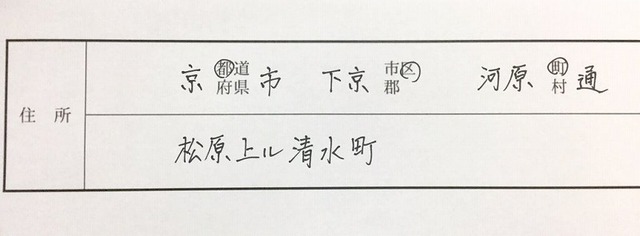 住所
京都道府県市 下京市区郡 河原町村通
松原上ル清水町